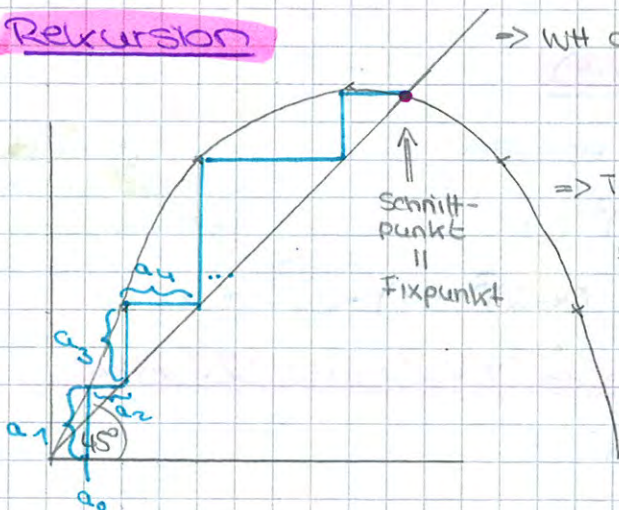 Rekursion
=> WH
=> T
Schnitt-
punkt
||
Fixpunkt
a₄
...
a₃
a₂
a₁
45°
a₀